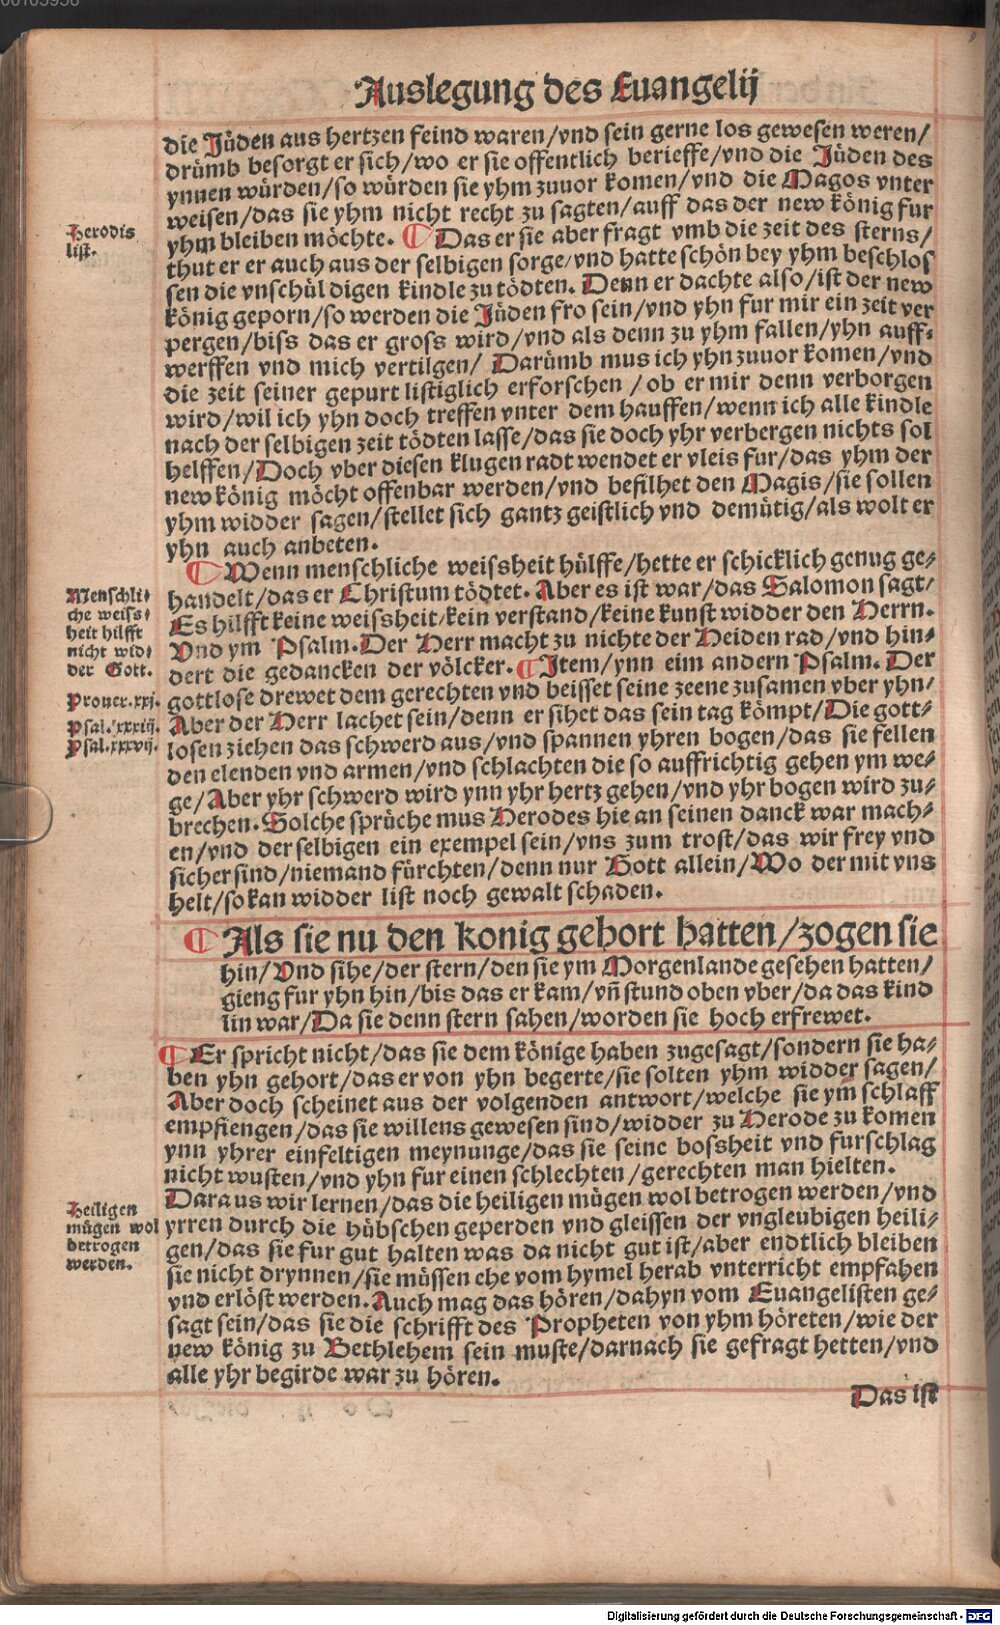 Auslegung des Euangelij
die Jüden aus hertzen feind waren/vnd sein gerne los gewesen weren/
drümb besorgt er sich/wo er sie offentlich berieffe/vnd die Jüden des
ynnen würden/so würden sie yhm zuuor komen/vnd die Magos vnter
weisen/das sie yhm nicht recht zu sagten/auff das der new könig fur
Herodis
list.
yhm bleiben möchte. ¶ Das er sie aber fragt vmb die zeit des sterns/
thut er er auch aus der selbigen sorge/vnd hatte schön bey yhm beschlos
sen die vnschül digen kindle zu tödten. Denn er dachte also/ist der new
könig geporn/so werden die Jüden fro sein/vnd yhn fur mir ein zeit ver
pergen/biss das er gross wird/vnd als denn zu yhm fallen/yhn auff-
werffen vnd mich vertilgen/ Darümb mus ich yhn zuuor komen/vnd
die zeit seiner gepurt listiglich erforschen /ob er mir denn verborgen
wird/wil ich yhn doch treffen vnter dem hauffen/wenn ich alle kindle
nach der selbigen zeit tödten lasse/das sie doch yhr verbergen nichts sol
helffen/Doch vber diesen klugen radt wendet er vleis fur/das yhm der
new könig möcht offenbar werden/vnd befilhet den Magis/sie sollen
yhm widder sagen/stellet sich gantz geistlich vnd demütig/als wolt er
yhn auch anbeten.
¶ Wenn menschliche weissheit hülffe/hette er schicklich genug ge-
Menschli-
che weiss-
heit hilfft
nicht wid-
der Gott.
handelt/das er Christum tödtet. Aber es ist war/das Salomon sagt/
Es hilfft keine weissheit/kein verstand/keine kunst widder den Herrn.
Vnd ym Psalm. Der Herr macht zu nichte der Heiden rad/vnd hin-
dert die gedancken der völcker. ¶ Item/ynn eim andern Psalm. Der
Prouer.xxj.
gottlose drewet dem gerechten vnd beisset seine zeene zusamen vber yhn/
Psal.xxxiij.
Aber der Herr lachet sein/denn er sihet das sein tag kömpt/Die gott-
Psal.xxxvij.
losen ziehen das schwerd aus/vnd spannen yhren bogen/das sie fellen
den elenden vnd armen/vnd schlachten die so auffrichtig gehen ym we-
ge/Aber yhr schwerd wird ynn yhr hertz gehen/vnd yhr bogen wird zu-
brechen. Solche sprüche mus Herodes hie an seinen danck war mach-
en/vnd der selbigen ein exempel sein/vns zum trost/das wir frey vnd
sicher sind/niemand fürchten/denn nur Gott allein/Wo der mit vns
helt/so kan widder list noch gewalt schaden.
¶ Als sie nu den konig gehort hatten/zogen sie
hin/Vnd sihe/der stern/den sie ym Morgenlande gesehen hatten/
gieng fur yhn hin/bis das er kam/vñ stund oben vber/da das kind
lin war/Da sie denn stern sahen/worden sie hoch erfrewet.
¶ Er spricht nicht/das sie dem könige haben zugesagt/sondern sie ha-
ben yhn gehort/das er von yhn begerte/sie solten yhm widder sagen/
Aber doch scheinet aus der volgenden antwort/welche sie ym schlaff
empfiengen/das sie willens gewesen sind/widder zu Herode zu komen
ynn yhrer einfeltigen meynunge/das sie seine bossheit vnd furschlag
nicht wusten/vnd yhn fur einen schlechten/gerechten man hielten.
Daraus wir lernen/das die heiligen mügen wol betrogen werden/vnd
Heiligen
mügen wol
betrogen
werden.
yrren durch die hübschen geperden vnd gleissen der vngleubigen heili-
gen/das sie fur gut halten was da nicht gut ist/aber endtlich bleiben
sie nicht drynnen/sie müssen ehe vom hymel herab vnterricht empfahen
vnd erlöst werden. Auch mag das hören/dahyn vom Euangelisten ge-
sagt sein/das sie die schrifft des Propheten von yhm höreten/wie der
new könig zu Bethlehem sein muste/darnach sie gefragt hetten/vnd
alle yhr begirde war zu hören.
Das ist
Digitalisierung gefördert durch die Deutsche Forschungsgemeinschaft - DFG